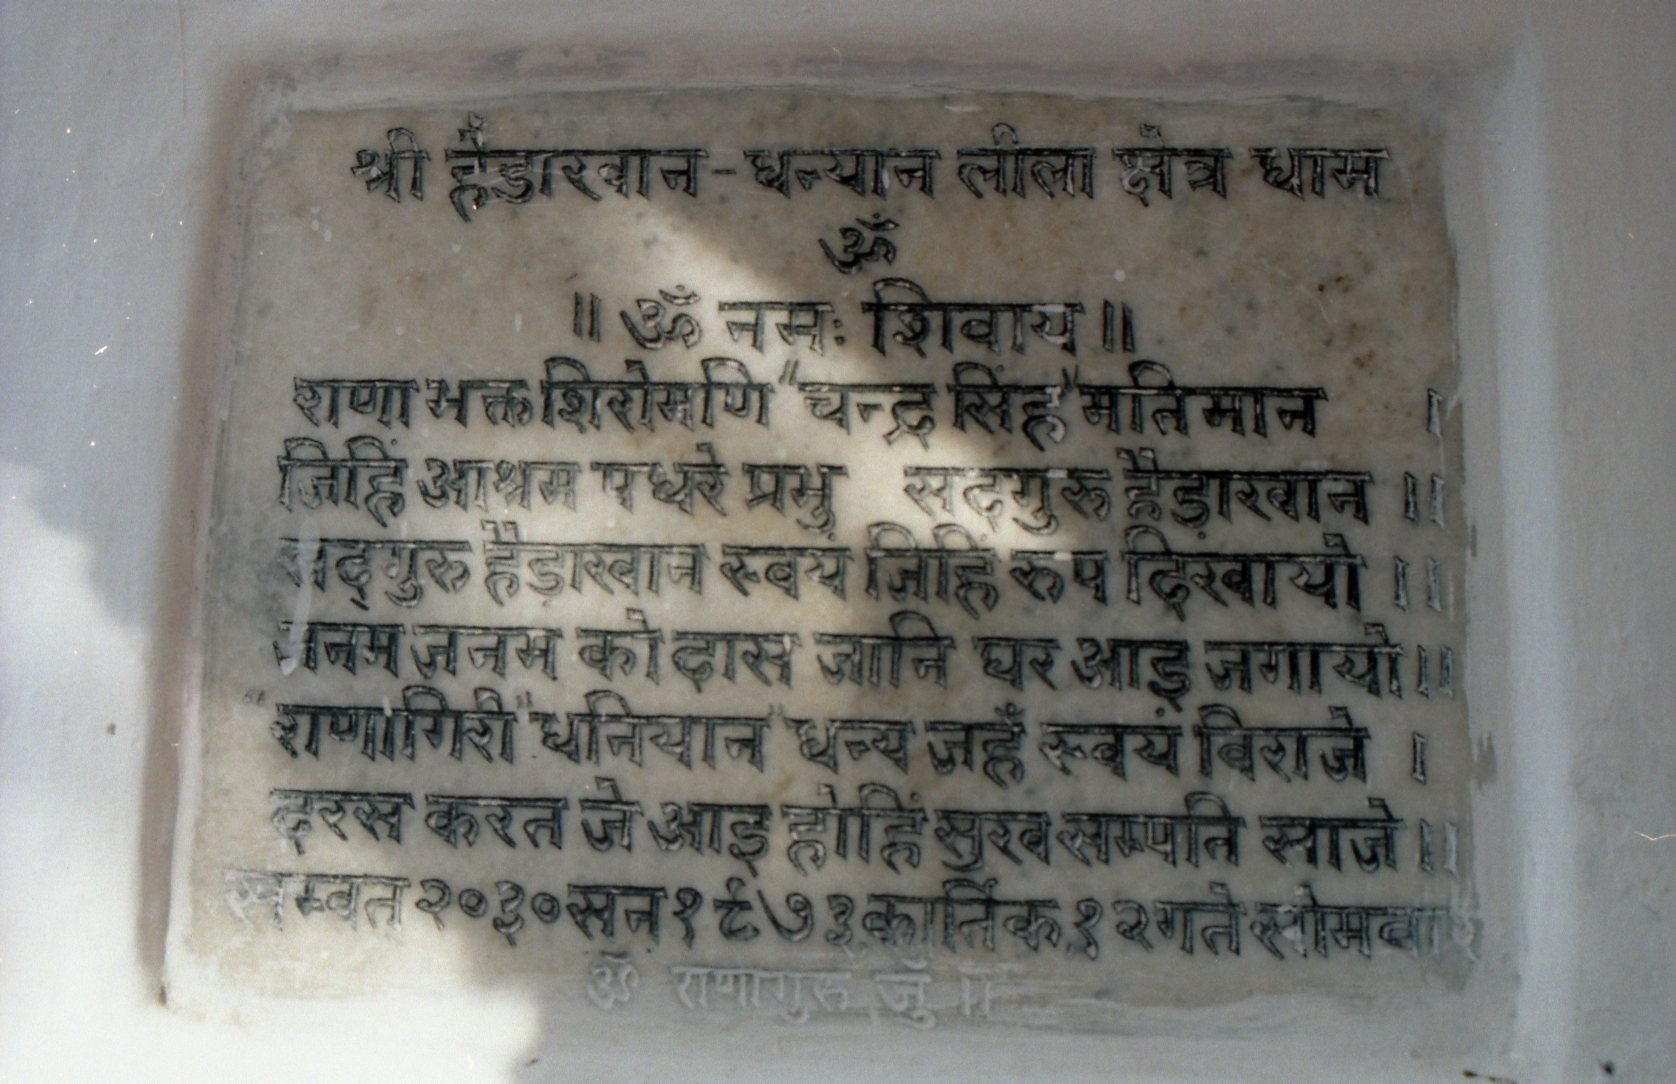 श्री हैडारवान - धन्यान लीला क्षेत्र धाम
ॐ
॥ ॐ नमः शिवाय ॥
राणा भक्त शिरोमणि "चन्द्र सिंह" मतिमान ।
जिहिं आश्रम पधरे प्रभु सदगुरु हैड़ारवान ॥
सद्गुरु हैडारवान स्वयं जिहिं रुप दिखायो ॥
जनम जनम को दास जानि घर आइ जगायो ॥
राणागिरी "धनियान" धन्य जहँ स्वयं विराजे ।
दरस करत जे आइ होहिं सुख सम्पति साजे ॥
सम्वत् २०३० सन १९७३ कार्तिक १२ गते सोमवार
ॐ राणागुरु जुँ ॥